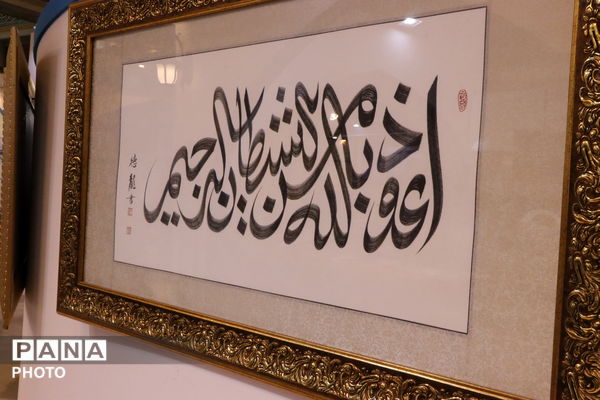 اعوذ بالله من الشيطان الرجيم
PANA
PHOTO